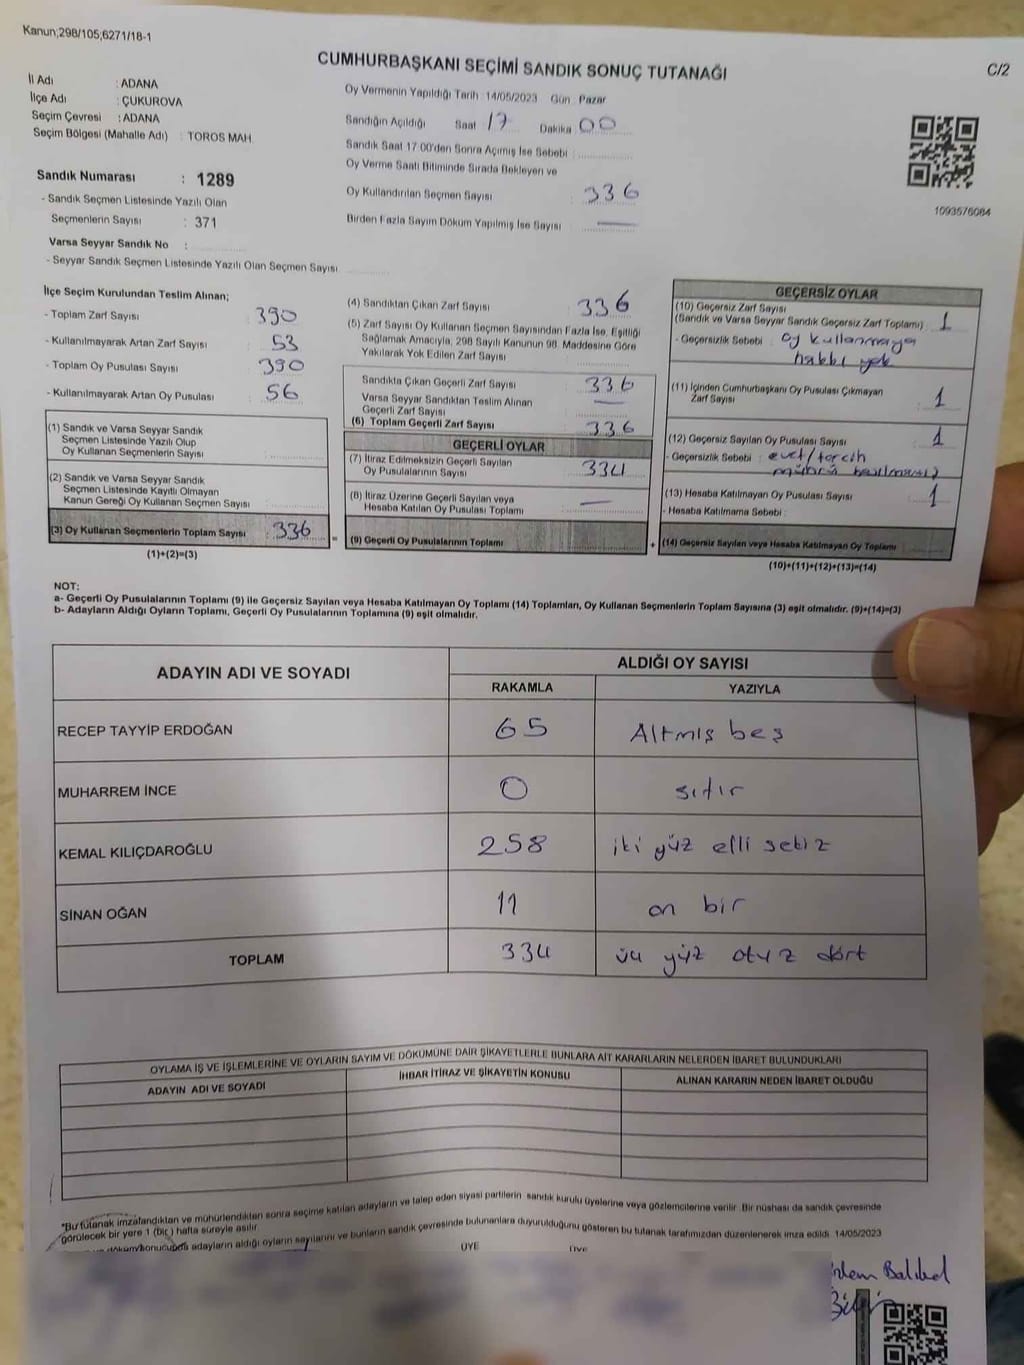 Kanun;298/105;6271/18-1
CUMHURBAŞKANI SEÇİMİ SANDIK SONUÇ TUTANAĞI
C/2
İl Adı : ADANA
İlçe Adı : ÇUKUROVA
Seçim Çevresi : ADANA
Seçim Bölgesi (Mahalle Adı) : TOROS MAH.
Sandık Numarası : 1289
- Sandık Seçmen Listesinde Yazılı Olan
Seçmenlerin Sayısı : 371
Varsa Seyyar Sandık No :
- Seyyar Sandık Seçmen Listesinde Yazılı Olan Seçmen Sayısı
Oy Vermenin Yapıldığı Tarih : 14/05/2023 Gün : Pazar
Sandığın Açıldığı Saat 17 Dakika 00
Sandık Saat 17:00'den Sonra Açımış İse Sebebi :
Oy Verme Saati Bitiminde Sırada Bekleyen ve
Oy Kullandırılan Seçmen Sayısı : 336
Birden Fazla Sayım Döküm Yapılmış İse Sayısı : —
1093576084
İlçe Seçim Kurulundan Teslim Alınan;
- Toplam Zarf Sayısı : 390
- Kullanılmayarak Artan Zarf Sayısı : 53
- Toplam Oy Pusulası Sayısı : 390
- Kullanılmayarak Artan Oy Pusulası : 56
(1) Sandık ve Varsa Seyyar Sandık
Seçmen Listesinde Yazılı Olup
Oy Kullanan Seçmenlerin Sayısı :
(2) Sandık ve Varsa Seyyar Sandık
Seçmen Listesinde Kayıtlı Olmayan
Kanun Gereği Oy Kullanan Seçmen Sayısı :
(3) Oy Kullanan Seçmenlerin Toplam Sayısı : 336
(1)+(2)=(3)
(4) Sandıktan Çıkan Zarf Sayısı : 336
(5) Zarf Sayısı Oy Kullanan Seçmen Sayısından Fazla İse, Eşitliği
Sağlamak Amacıyla, 298 Sayılı Kanunun 98. Maddesine Göre
Yakılarak Yok Edilen Zarf Sayısı :
Sandıkta Çıkan Geçerli Zarf Sayısı : 336
Varsa Seyyar Sandıktan Teslim Alınan
Geçerli Zarf Sayısı : —
(6) Toplam Geçerli Zarf Sayısı : 336
=
GEÇERLİ OYLAR
(7) İtiraz Edilmeksizin Geçerli Sayılan
Oy Pusulalarının Sayısı : 334
(8) İtiraz Üzerine Geçerli Sayılan veya
Hesaba Katılan Oy Pusulası Toplamı : —
(9) Geçerli Oy Pusulalarının Toplamı :
+
GEÇERSİZ OYLAR
(10) Geçersiz Zarf Sayısı
(Sandık ve Varsa Seyyar Sandık Geçersiz Zarf Toplamı) : 1
- Geçersizlik Sebebi : oy kullanmaya
hakkı yok
(11) İçinden Cumhurbaşkanı Oy Pusulası Çıkmayan
Zarf Sayısı : 1
(12) Geçersiz Sayılan Oy Pusulası Sayısı : 1
- Geçersizlik Sebebi : evet/tercih
mührü basılmamış
(13) Hesaba Katılmayan Oy Pusulası Sayısı : 1
- Hesaba Katılmama Sebebi :
(14) Geçersiz Sayılan veya Hesaba Katılmayan Oy Toplamı
(10)+(11)+(12)+(13)=(14)
NOT:
a- Geçerli Oy Pusulalarının Toplamı (9) ile Geçersiz Sayılan veya Hesaba Katılmayan Oy Toplamı (14) Toplamları, Oy Kullanan Seçmenlerin Toplam Sayısına (3) eşit olmalıdır. (9)+(14)=(3)
b- Adayların Aldığı Oyların Toplamı, Geçerli Oy Pusulalarının Toplamına (9) eşit olmalıdır.
ADAYIN ADI VE SOYADI
ALDIĞI OY SAYISI
RAKAMLA YAZIYLA
RECEP TAYYİP ERDOĞAN 65 Altmış beş
MUHARREM İNCE 0 sıfır
KEMAL KILIÇDAROĞLU 258 iki yüz elli sekiz
SİNAN OĞAN 11 on bir
TOPLAM 334 üç yüz otuz dört
OYLAMA İŞ VE İŞLEMLERİNE VE OYLARIN SAYIM VE DÖKÜMÜNE DAİR ŞİKAYETLERLE BUNLARA AİT KARARLARIN NELERDEN İBARET BULUNDUKLARI
ADAYIN ADI VE SOYADI İHBAR İTİRAZ VE ŞİKAYETİN KONUSU ALINAN KARARIN NEDEN İBARET OLDUĞU
*Bu tutanak imzalandıktan ve mühürlendikten sonra seçime katılan adayların ve talep eden siyasi partilerin sandık kurulu üyelerine veya gözlemcilerine verilir. Bir nüshası da sandık çevresinde
görülecek bir yere 1 (bir) hafta süreyle asılır.
döküm sonucunda adayların aldığı oyların sayılarını ve bunların sandık çevresinde bulunanlara duyurulduğunu gösteren bu tutanak tarafımızdan düzenlenerek imza edildi. 14/05/2023
ÜYE Üye